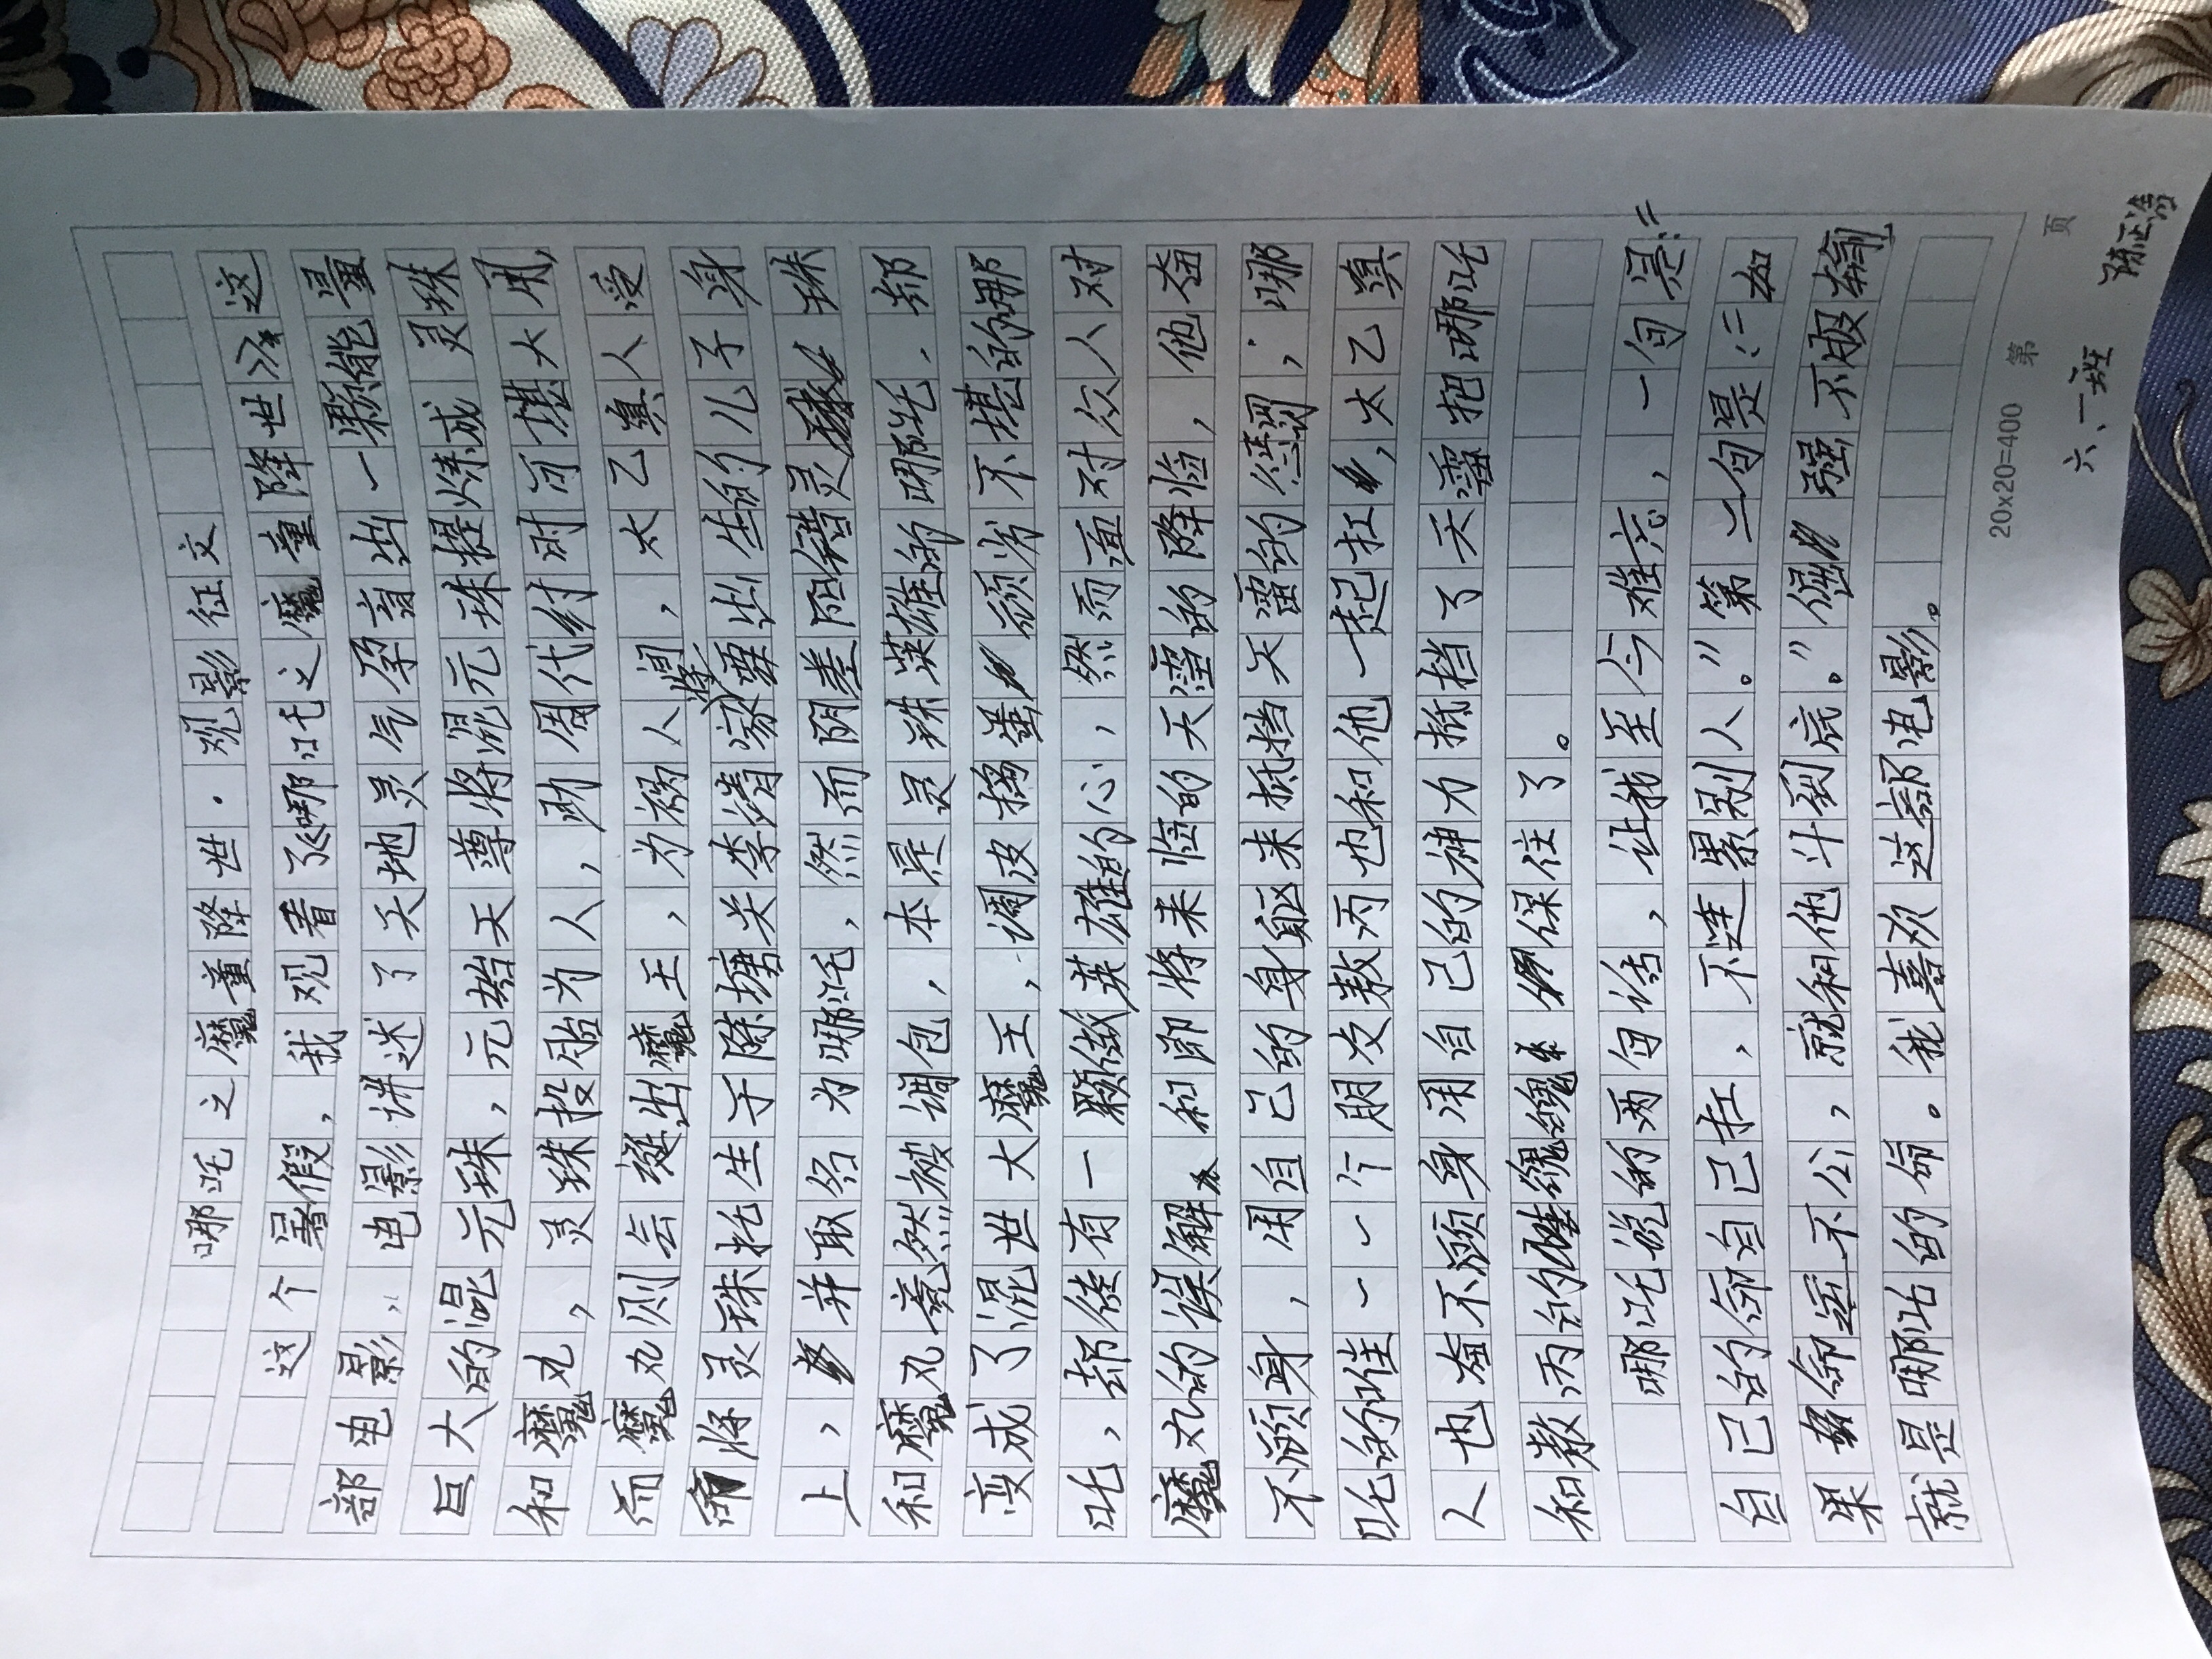 哪吒之魔童降世·观影征文
这个暑假，我观看了《哪吒之魔童降世》，这
部电影，电影讲述了天地灵气孕育出一颗能量
巨大的混元珠，元始天尊将混元珠提炼成灵珠
和魔丸，灵珠投胎为人，助周代纣时可堪大用，
而魔丸则会诞出魔王，为祸人间，太乙真人受
命将灵珠托生于陈塘关李靖家将要出生的儿子身
上，并取名为哪吒，然而阴差阳错灵珠
和魔丸竟然被调包，本是灵珠英雄的哪吒，却
变成了混世大魔王，调皮捣蛋顽劣不堪的哪
吒，却徒有一颗做英雄的心，然而面对众人对
魔丸的误解和即将来临的天雷的降临，他奋
不顾身，用自己的身躯来抵挡天雷的惩罚，哪
吒的唯一一个朋友敖丙也和他一起扛，太乙真
人也奋不顾身用自己的神力抵挡了天雷把哪吒
和敖丙的魂魄保住了。
哪吒说的两句话，让我至今难忘，一句是：“
自己的命自己扛，不连累别人。”第二句是：“如
果命运不公，就和他斗到底。”倔强不服输
就是哪吒的命。我喜欢这部电影。
20x20=400 第 页
六、一班